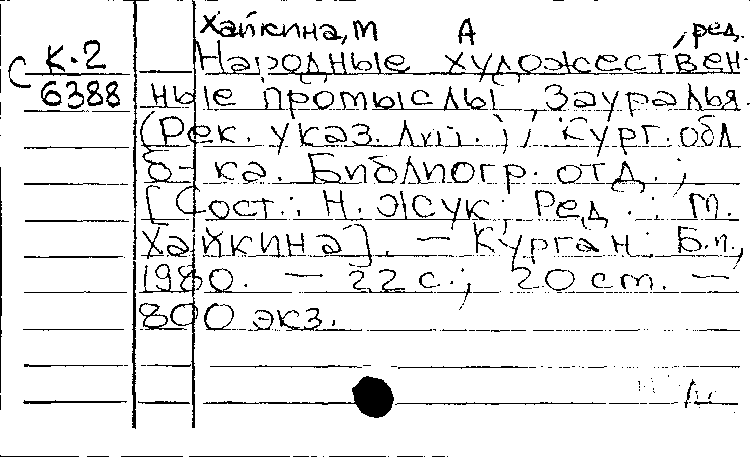 Хайкина, М А , ред.
С К-2
6388
Народные художествен-
ные промыслы Зауралья.
(Рек. указ. лит.) / Кург. обл
б-ка. Библиогр. отд.;
[Сост.: Н. Жук; Ред.: М.
Хайкина]. — Курган: Б.и.,
1980. — 22 с.; 20 см. —
800 экз.